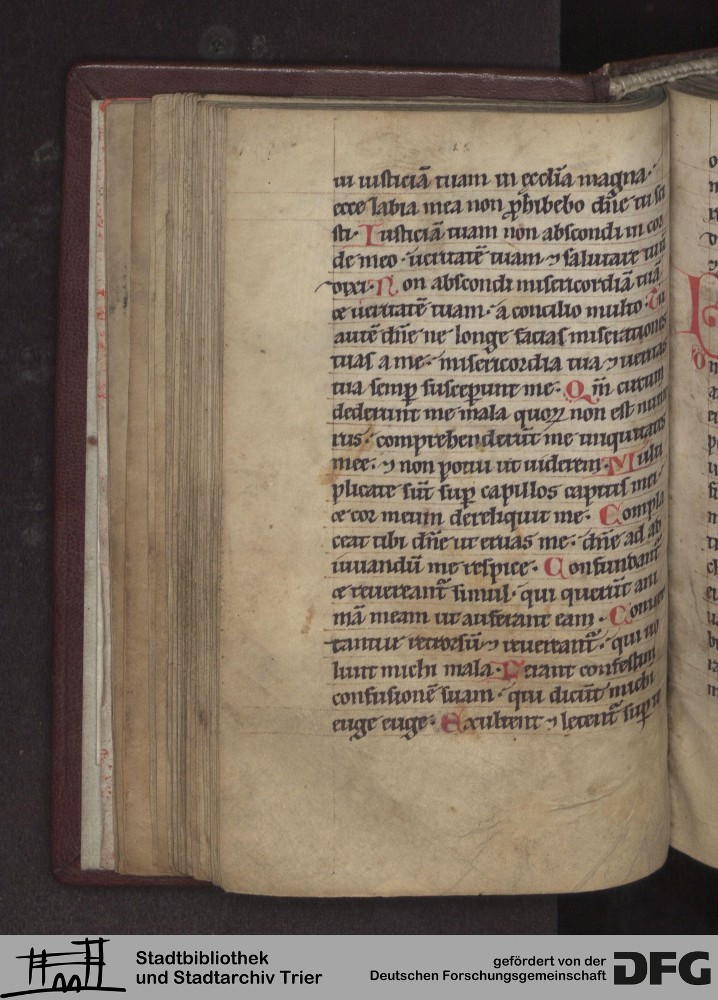 ui iusticiā tuam in ecclīa magna·
ecce labia mea non ꝓhibebo dn̄e tu sci
sti· Iusticiā tuam non abscondi in cor
de meo· ueritatē tuam ⁊ salutare tuū
dixi· Non abscondi misericordiā tuā
⁊ ueritatē tuam· a concilio multo· Tu
autē dn̄e ne longe facias miserationes
tuas a me· misericordia tua ⁊ ueritas
tua semꝑ susceperunt me· Qm̄ circum
dederunt me mala quoꝝ non est nume
rus· comprehenderūt me iniquitates
mee· ⁊ non potui ut uiderem· Multi
plicate sūt suꝑ capillos capitis mei·
⁊ cor meum dereliquit me· Compla
ceat tibi dn̄e ut eruas me· dn̄e ad ad
iuuandū me respice· Confundant᷑
⁊ reuereant᷑ simul· qui querūt ani
mā meam ut auferant eam· Conuer
tantur retrorsū ⁊ reuereant᷑· qui uo
lunt michi mala· Ferant confestim
confusionē suam· qui dicūt michi
euge euge· Exultent ⁊ letent᷑ suꝑ te
Stadtbibliothek
und Stadtarchiv Trier
gefördert von der
Deutschen Forschungsgemeinschaft
DFG